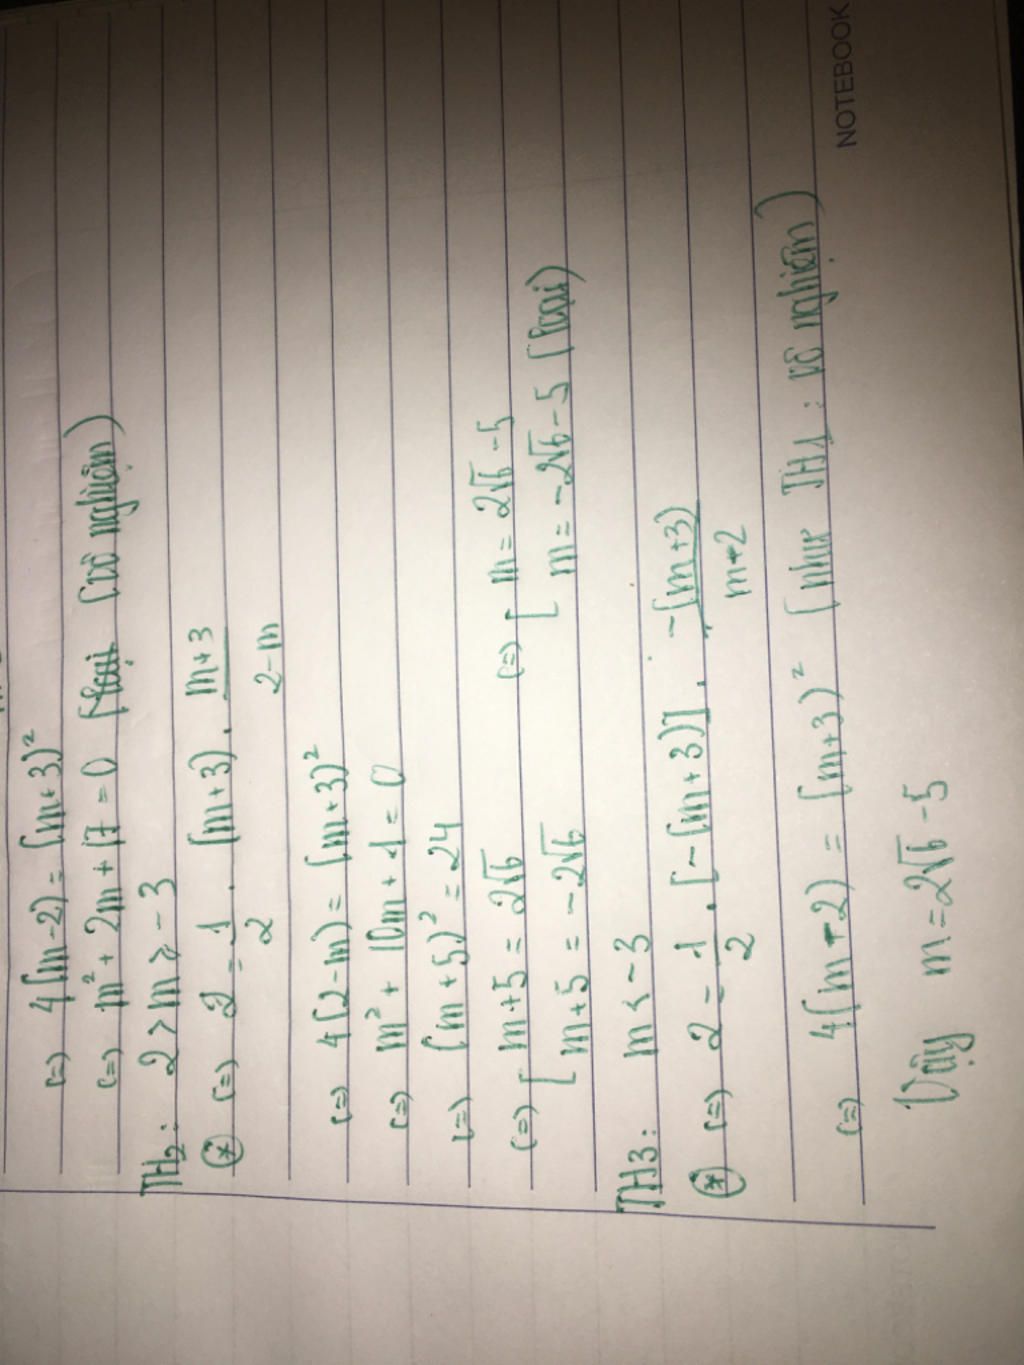 (=) 4(m-2) = (m+3)²
(=) m² + 2m + 17 = 0 (vô nghiệm)
TH2: 2 > m ≥ -3
(*) (=) 2 = 1/2 . (m+3) . (m+3)/(2-m)
(=) 4(2-m) = (m+3)²
(=) m² + 10m + 1 = 0
(=) (m+5)² = 24
(=) [ m+5 = 2√6 (=) [ m = 2√6 - 5
m+5 = -2√6 m = -2√6 - 5 (loại)
TH3: m < -3
(*) (=) 2 = 1/2 . [-(m+3)] . -(m+3)/(m-2)
(=) 4(m-2) = (m+3)² (như TH1: vô nghiệm)
Vậy m = 2√6 - 5
NOTEBOOK